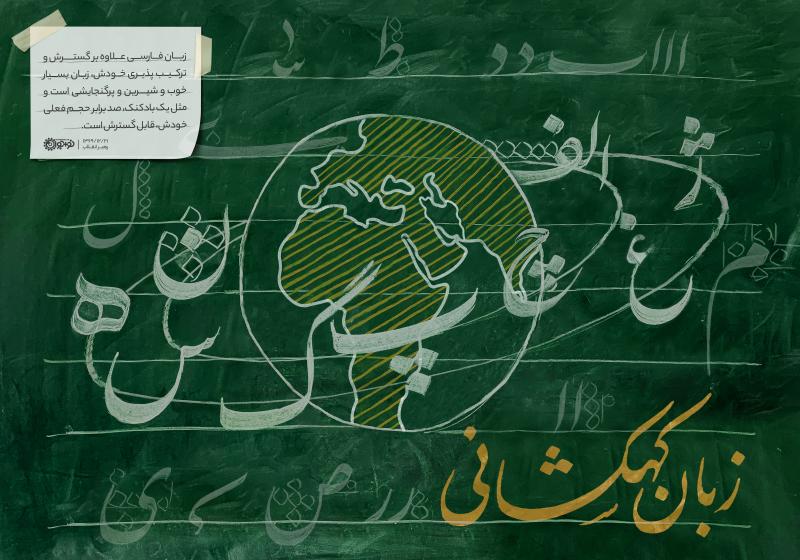 زبان فارسی علاوه بر گسترش و
ترکیب پذیری خودش، زبان بسیار
خوب و شیرین و پرگنجایشی است و
مثل یک بادکنک، صد برابر حجم فعلی
خودش، قابل گسترش است.
۱۳۶۹/۱۲/۲۱
رهبر انقلاب
الف
ژ
چ
غ
پ
گ
س
ل
ه
م
ط
ص
ی
زبان کهکشانی